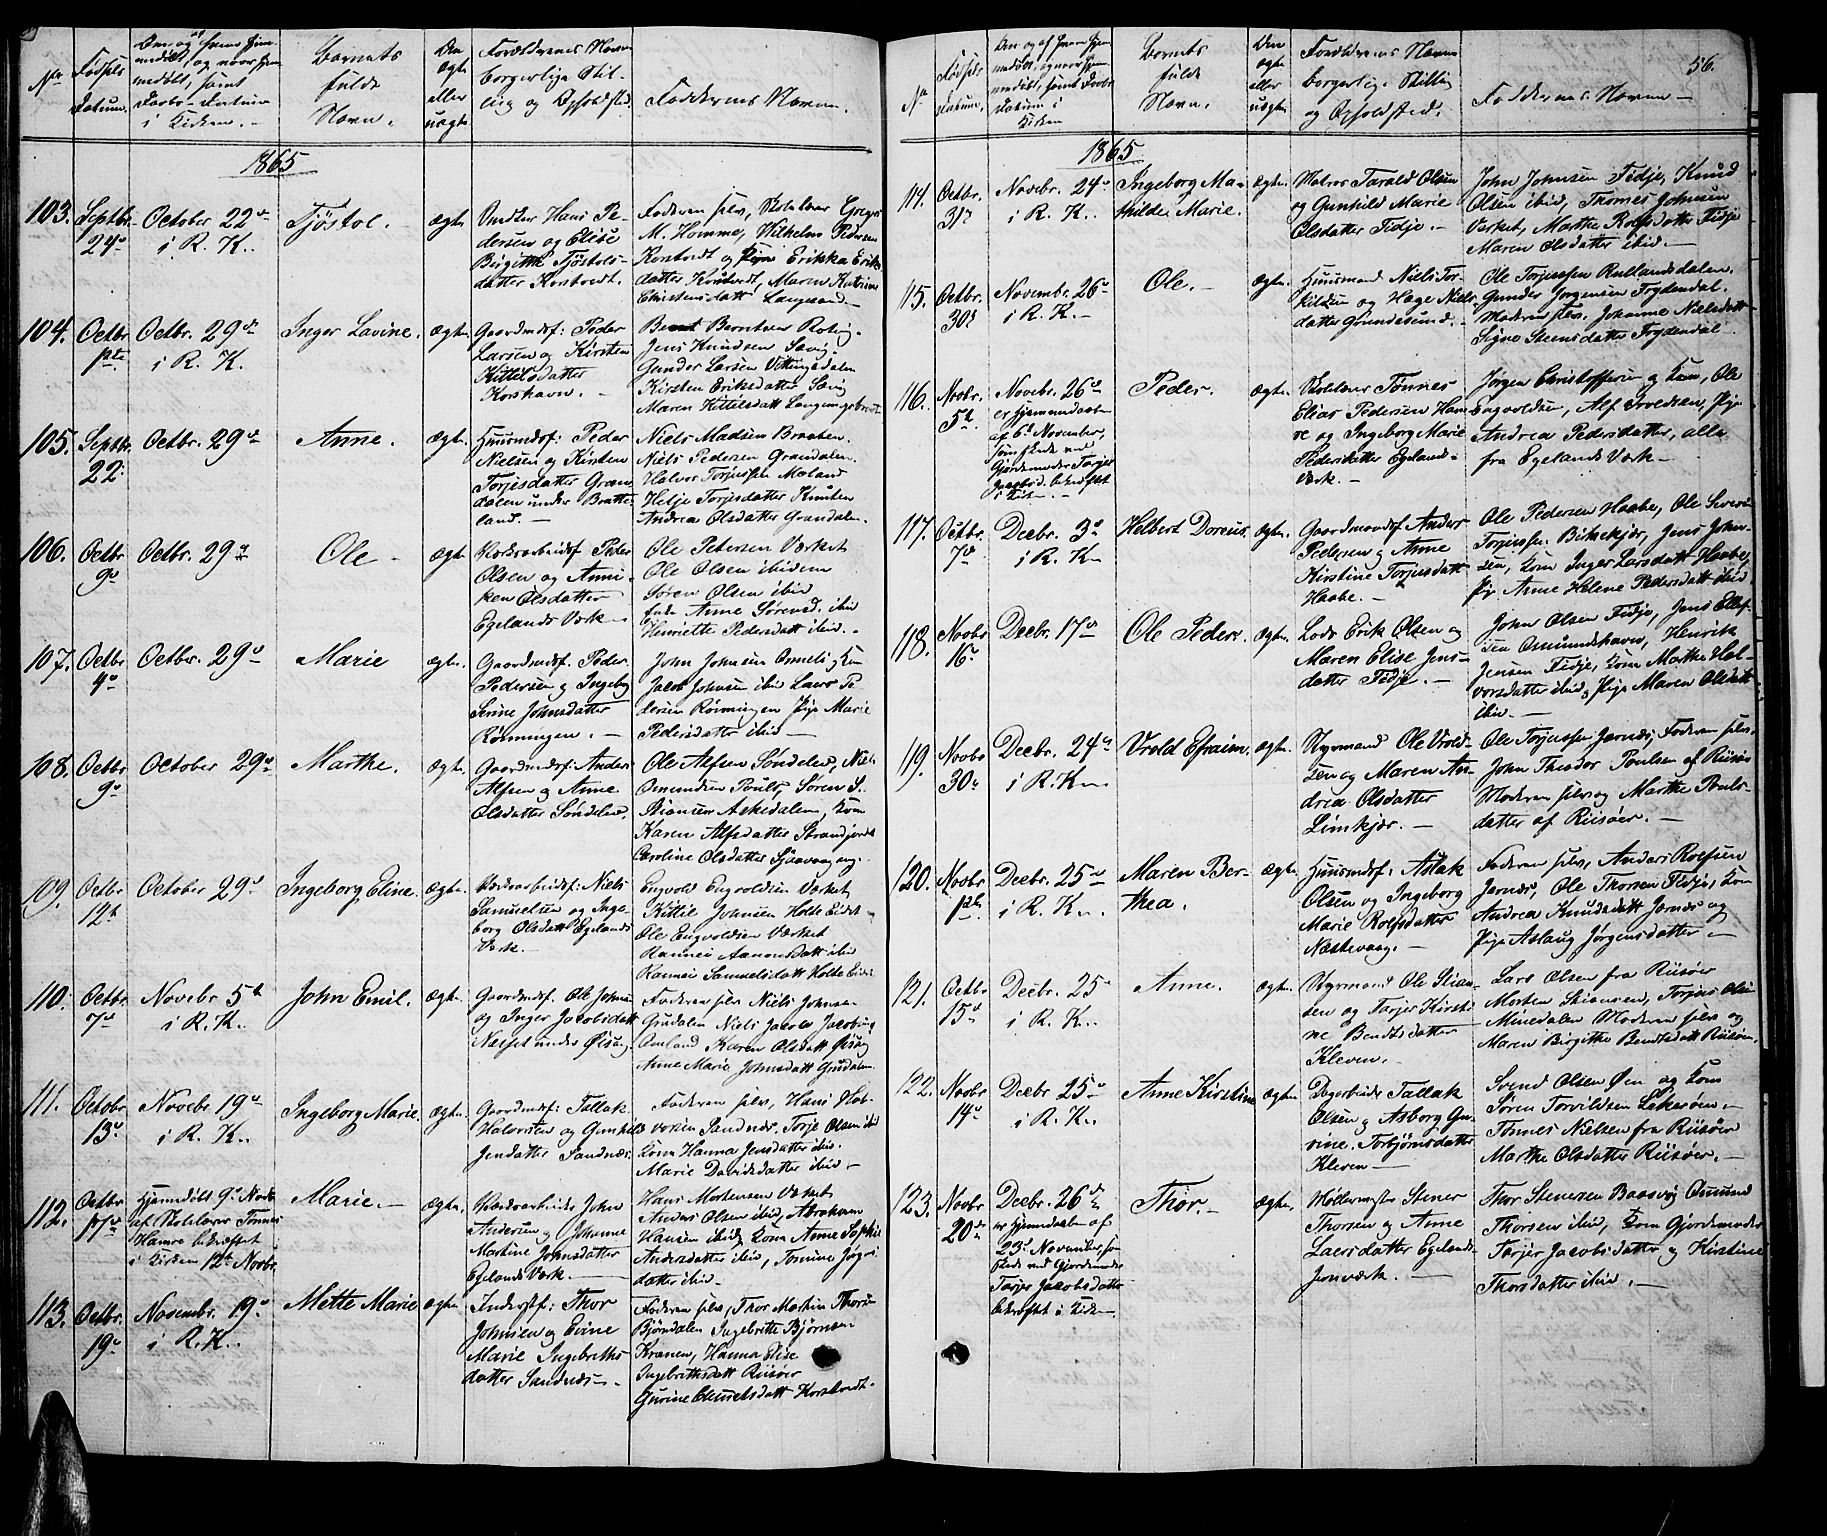 No
Fødsels
Datum.
Børnets
fulde
Navn.
Den
ægte
eller
uægte
Forældrenes Navn
borgerlige Stil-
ling og Opholdsted
Faddernes Navn.
1865
103.
Septbr.
24
October 22
i R. K.
Tjöstol.
ægte
Hans Pe-
dersen og Elise
Birgitte Tjöstols-
datter Korstvedt.
Faderen selv, Skolelærer Greger
M. Homme, Wilhelm Pedersen
Korstvedt og Erikka Eriks
datter Korstvedt, Maren Katrine
Christensdatt Langaard
104.
Octbr.
1ste
Octbr. 29
i R. K.
Inger Lavine.
ægte.
Gaardmdsf: Peder
Larsen og Kirsten
Kittilsdatter
Korshavn.
Berntsen
Jens Knudsen
Gunder Larsen
Kirsten Eriksdatter
Maren Kittilsdatt
105.
Septbr.
22
Octbr. 29
Anne.
ægte.
Huusmdsf: Peder
Nielsen og Kirsten
Torjesdatter Gran
dalen under Bratte-
land.
Niels Madsen Braaten.
Niels Pedersen Grandalen.
Halvor Torjussen Moland
Helje Torjesdatter Knuten
Andrea Olsdatter Grandalen.
106.
Octbr
9
Octbr. 29
Ole
ægte
Værksarbeidsf. Peder
Olsen og Anni-
ken Olsdatter
Egelands Værk
Ole Petersen Værket
Ole Olsen ibidem
Søren Olsen ibid
Anne Sørensd. ibid
Henriette Pedersdatt ibid.
107.
Octbr
4
Octbr. 29
Marie
ægte.
Gaardmdsf. Peder
Pedersen og Ingeborg
Serine Johnsdatter
Rønningen.
John Johnsen
Jacob Johnsen ibid Lars Pe-
dersen Rønningen Pige Marie
Pedersdatter ibid
108.
Octbr
9
October 29
Marthe.
ægte.
Gaardmdsf: Anders
Alfsen og Anne
Olsdatter Søndelev.
Ole Alfsen Søndelev, Niels
Osmundsen Søren S.
Kone
Karen Alfsdatter
Caroline Olsdatter
109.
Octbr
12
October 29
Ingeborg Eline.
ægte.
Værksarbeidsf: Niels
Samuelsen og Inge-
borg Olsdatt Egelands
Værk.
Engvold Engvoldsen Værket
Kittil Johnsen Holte Eidet
Ole Engvoldsen Værket
Aanonsdatt ibid
Samuelsdatt Holte Eidet
110.
Octbr
7
Novebr 5
i R. K.
John Emil.
ægte.
Gaardmdsf. Ole Johns
og Inger Jacobsdatt
under
Faderen selv Niels Johnsen
Niels Jacob Jacobsen
Omland Karen Olsdatt
Anne Marie Johnsdatt
111.
Octobr
13
Novebr 19
i R. K.
Ingeborg Marie.
ægte.
Gaardmdsf: Tallak
Halvorsen og Gunhild
Jensdatter Sandnæs.
Faderen selv, Hans Hal-
vorsen Sandnæs. Torje Olsen ibid
Kone Hanna Jensdatter ibid.
Marie Davidsdatter ibid
112.
Octbr
17
Hjemmedøbt 9 Novbr
af Skolelærer Tønnes
Hamre bekræftet
i Kirken 12te Novbr.
Marie.
ægte.
Værksarbeider John
Andersen og Johanne
Martine Johnsdatter
Egelands Værk.
Hans Mortensen Værket
Anders Olsen ibid, Abraham
Hansen ibid, Kone Anne Sophie
Andersdatter ibid, Tomine Jørgs
datter ibid.
113.
Octbr.
19
Novembr. 19
i R. K.
Mette Marie
ægte
Inderstf: Thor
Johnsen og Eline
Marie Ingebrethts
datter Sandnæs
Faderen selv, Thor Martin Thors
Bjørndalen Ingebritte Bjørnsen
Kranen, Hanna Elise
Ingebrithsdatt Riisøer
Gurine Clemetsdatt Korstvedt.
56.
No
Fødsels
Datum.
Børnets
fulde
Navn.
Den
ægte
eller
uægte
Forældrenes Navn
borgerlige Stilling
og Opholdsted.
Faddernes Navn
1865
114.
Octbr.
31
Novebr. 24
i R. K.
Ingeborg Ma-
thilde Marie.
ægte.
Matros Tarald Olsen
og Gunhild Marie
Olsdatter Fidje.
John Johnsen Fidje, Knud
Olsen ibid, Thomes Johnsen
Værket, Marthe Rolfsdatter Fidje
Maren Olsdatter ibid.
115.
Octbr.
30
Novembr. 26
i R. K.
Ole.
ægte.
Huusmand Niels Ter-
kildsen og Hæge Niels-
datter Grundesund.
Ole Torjussen Rullandsdalen.
Gunder Jørgensen Trydendal.
Moderen selv. Johanne Nielsdatt
Signe Steensdatter Trydendal
116.
Novbr.
5
Novebr. 26
er hjemmedøbt
af 6 November,
som skede ved
Gjordemoder Tarjer
Jacobsd. bekræftet
i Kirken.
Peder.
ægte.
Skolelærer Tønnes
Elias Pedersen Ham
re og Ingeborg Marie
Pedersdatter Egelands-
Værk.
Jørgen Christoffersen og Kone, Ole
Engvoldsen, Alf Pige
Andrea Pedersdatter, alle
fra Egelands Værk
117.
Octbr.
7
Decbr. 3
i R. K.
Helbert Doreus.
ægte.
Gaardmandsf Anders
Pedersen og Anne
Kirstine Torjusdatt
Haabe.
Ole Pedersen Haabe, Ole Siversen
Torjussen Jens John-
sen, Kone Inger Larsdatt Haabe,
Pige Anne Helene Pedersdatt ibid.
118.
Novbr
16
Decbr. 17
Ole Peder.
ægte.
Lods Erik Olsen og
Maren Elise Jens-
datter Fidje.
John Olsen Fidje, Jens Ellef-
sen Osmundshavn, Henrik
Jensen Fidje, Kone Marthe Hal-
vorsdatter ibid, Pige Maren Olsdatt
ibid.
119.
Novbr
30
Decbr. 24
i R. K.
Vrold Efraim.
ægte.
Styrmand Ole Vrold-
sen og Maren An-
drea Olsdatter
Limkjær.
Ole Torjussen Jarnæs, Faderen selv,
John Theodor Poulsen af Riisøer
Moderen selv og Marthe Pouls-
datter af Riisøer.
120.
Novbr
1ste
Decbr. 25
i R. K.
Maren Ber-
thea.
ægte.
Huusmdsf: Aslak
Olsen og Ingeborg
Marie Rolfsdatter
Næstevaag.
Faderen selv, Anders Rolfsen
Jarnæs, Ole Thorsen Fidje, Kone
Andrea Knudsdatt Jarnæs og
Pige Aslaug Jørgensdatter.
121.
Octbr
15
Decbr. 25
i R. K.
Anne.
ægte.
Styrmand Ole Stian-
sen og Tarjer Kirsti-
ne Bendtsdatter
Kleven.
Lars Olsen fra Riisøer
Morten Stiansen, Torjus Olsen
Minedalen Moderen selv og
Maren Birgitte Bendtsdatt Riisøer.
122.
Novbr
14
Decbr 25
i R. K.
Anne Kirstine
ægte
Dagarbeider Tallak
Olsen og Asborg Gu-
rine Torbjørnsdatter
Kleven
Svend Olsen Øen og Kone
Søren Torvildsen
Tønnes Nielsen fra Riisøer
Marthe Olsdatter Riisøer.
123.
Novbr
20
Decbr. 26
er hjemdøbt af
23 November, som
skede ved Gjordemoder
Tarjer Jacobsdatter
bekræftet i Kirken
Thor.
ægte.
Møllermester Stener
Thorsen og Anne
Larsdatter Egelands
Jernværk.
Thor Stenersen Baasvig Osmund
Thorsen ibid, Kone Gjordemoder
Tarjer Jacobsdatter og Kirstine
Thorsdatter ibid.